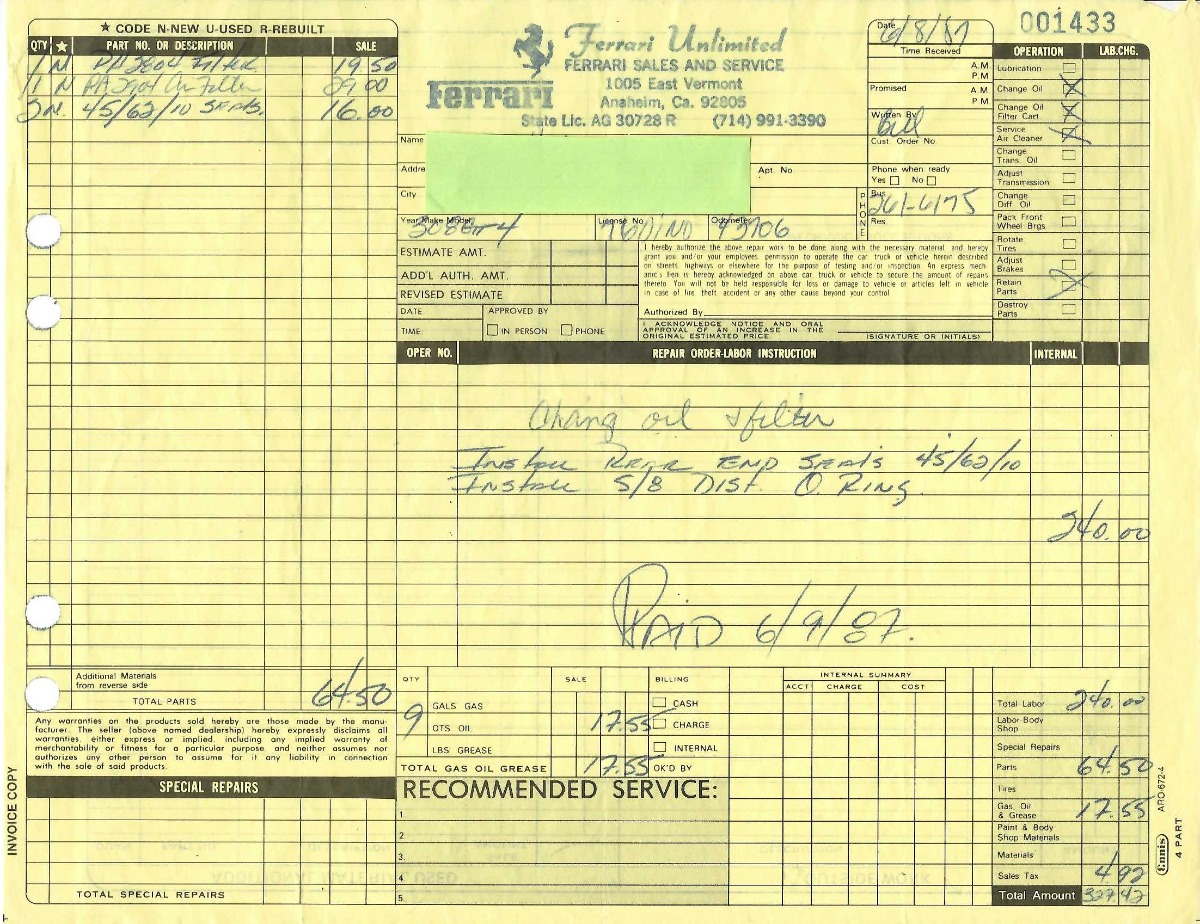 ★ CODE N-NEW U-USED R-REBUILT
QTY ★ PART NO. OR DESCRIPTION SALE
1 N PA 2804 Filter 19.50
1 N PA 2901 Air Filter 29.00
2 N. 45/62/10 SEALS. 16.00
Additional Materials
from reverse side
TOTAL PARTS 64.50
Any warranties on the products sold hereby are those made by the manu-
facturer. The seller (above named dealership) hereby expressly disclaims all
warranties, either express or implied, including any implied warranty of
merchantability or fitness for a particular purpose, and neither assumes nor
authorizes any other person to assume for it any liability in connection
with the sale of said products.
SPECIAL REPAIRS
TOTAL SPECIAL REPAIRS
INVOICE COPY
Ferrari
Ferrari Unlimited
FERRARI SALES AND SERVICE
1005 East Vermont
Anaheim, Ca. 92805
State Lic. AG 30728 R (714) 991-3390
Name
Addre
Apt No
City
Year-Make-Model License No. Odometer
308GT4 93706
Date 6/8/87
Time Received
A.M.
P.M
Promised A.M
P M
Written By
Bill
Cust. Order No.
Phone when ready
Yes No
PHONE
Bus
261-6175
Res.
001433
OPERATION LAB.CHG.
Lubrication
Change Oil X
Change Oil
Filter Cart. X
Service
Air Cleaner X
Change
Trans. Oil
Adjust
Transmission
Change
Diff Oil
Pack Front
Wheel Brgs
Rotate
Tires
Adjust
Brakes
Retain
Parts
Destroy
Parts
ESTIMATE AMT.
ADD'L AUTH. AMT.
REVISED ESTIMATE
DATE APPROVED BY
TIME: IN PERSON PHONE
I hereby authorize the above repair work to be done along with the necessary material, and hereby
grant you and/or your employees, permission to operate the car truck or vehicle herein described
on streets, highways or elsewhere for the purpose of testing and/or inspection. An express mech-
anic's lien is hereby acknowledged on above car, truck or vehicle to secure the amount of repairs
thereto. You will not be held responsible for loss or damage to vehicle or articles left in vehicle
in case of fire theft, accident or any other cause beyond your control
Authorized By
I ACKNOWLEDGE NOTICE AND ORAL
APPROVAL OF AN INCREASE IN THE
ORIGINAL ESTIMATED PRICE (SIGNATURE OR INITIALS)
OPER NO. REPAIR ORDER-LABOR INSTRUCTION INTERNAL
Chang oil & filter
Install Rear End Seals 45/62/10
Install S/B Dist. O Ring.
240.00
PAID 6/9/87.
QTY SALE BILLING
GALS GAS CASH
9 QTS OIL 17.55 CHARGE
LBS GREASE INTERNAL
TOTAL GAS OIL GREASE 17.55 OK'D BY
INTERNAL SUMMARY
ACCT CHARGE COST
RECOMMENDED SERVICE:
1
2
3.
4
5.
Total Labor 240.00
Labor Body
Shop
Special Repairs
Parts 64.50
Tires
Gas, Oil
& Grease 17.55
Paint & Body
Shop Materials
Materials
Sales Tax 4.92
Total Amount 327.42
Ennis 4 PART ARO-672-4